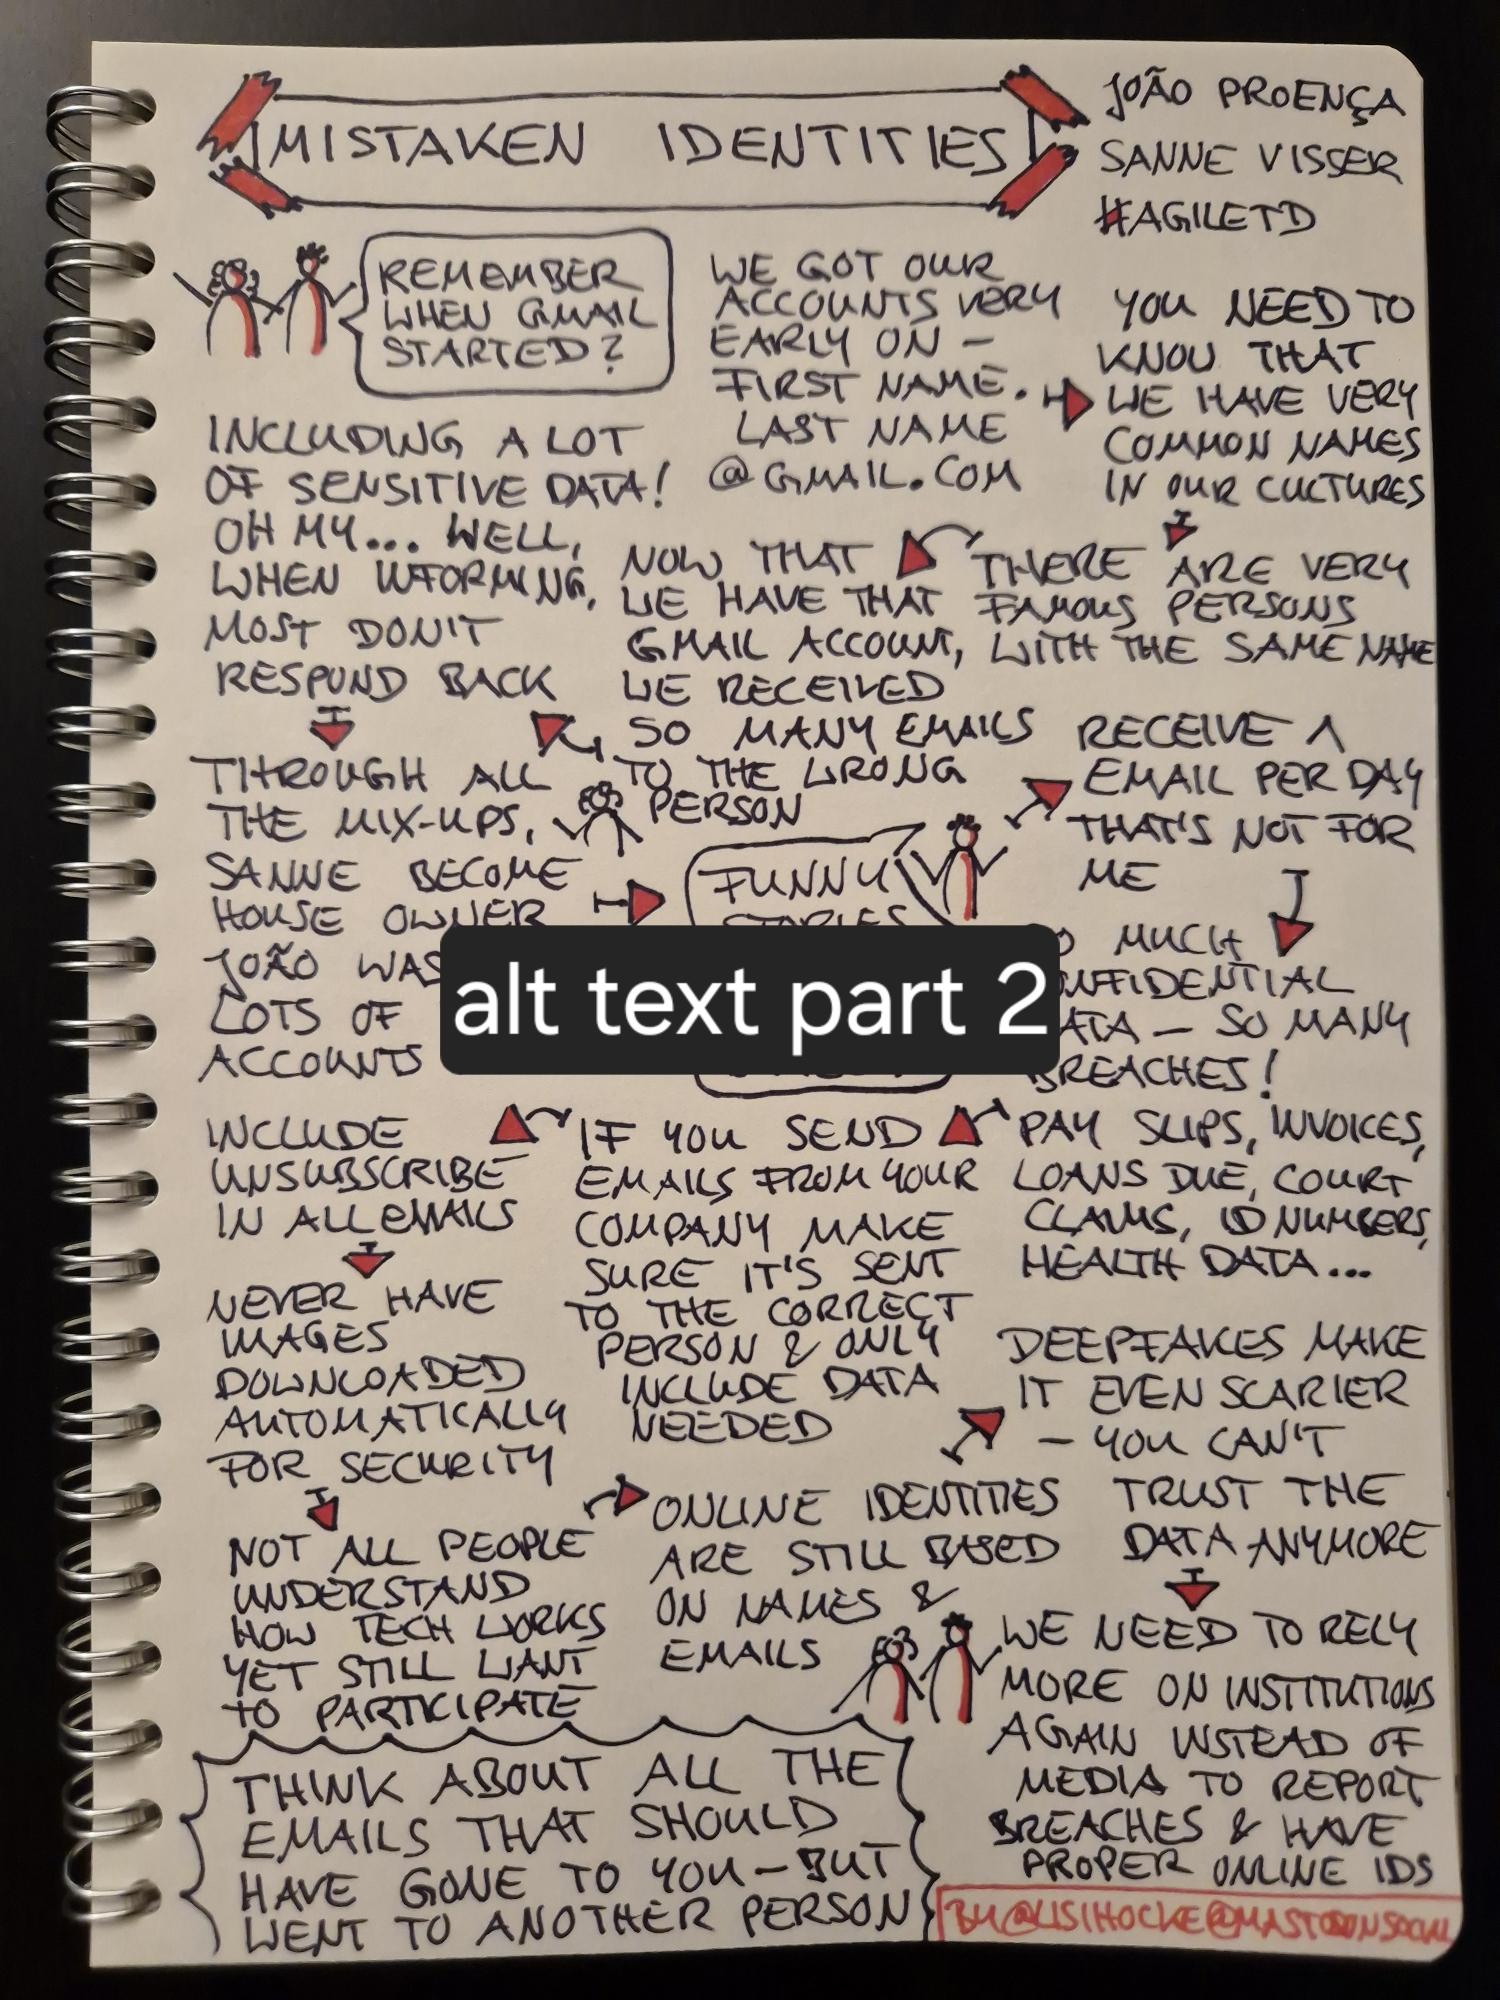 MISTAKEN IDENTITIES
JOÃO PROENÇA
SANNE VISSER
#AGILETD
REMEMBER
WHEN GMAIL
STARTED?
WE GOT OUR
ACCOUNTS VERY
EARLY ON –
FIRST NAME.
LAST NAME
@GMAIL.COM
YOU NEED TO
KNOW THAT
WE HAVE VERY
COMMON NAMES
IN OUR CULTURES
THERE ARE VERY
FAMOUS PERSONS
WITH THE SAME NAME
NOW THAT
WE HAVE THAT
GMAIL ACCOUNT,
WE RECEIVED
SO MANY EMAILS
TO THE WRONG
PERSON
INCLUDING A LOT
OF SENSITIVE DATA!
OH MY... WELL,
WHEN INFORMING,
MOST DON'T
RESPOND BACK
THROUGH ALL
THE MIX-UPS,
SANNE BECOME
HOUSE OWNER
JOÃO WAS
LOTS OF
ACCOUNTS
FUNNY
STORIES
RECEIVE 1
EMAIL PER DAY
THAT'S NOT FOR
ME
MUCH
BREACHES!
– SO MANY
PAY SLIPS, INVOICES,
LOANS DUE, COURT
CLAIMS, ID NUMBERS,
HEALTH DATA...
IF YOU SEND
EMAILS FROM YOUR
COMPANY MAKE
SURE IT'S SENT
TO THE CORRECT
PERSON & ONLY
INCLUDE DATA
NEEDED
INCLUDE
UNSUBSCRIBE
IN ALL EMAILS
NEVER HAVE
IMAGES
DOWNLOADED
AUTOMATICALLY
FOR SECURITY
NOT ALL PEOPLE
UNDERSTAND
HOW TECH WORKS
YET STILL WANT
TO PARTICIPATE
ONLINE IDENTITIES
ARE STILL BASED
ON NAMES &
EMAILS
DEEPFAKES MAKE
IT EVEN SCARIER
– YOU CAN'T
TRUST THE
DATA ANYMORE
WE NEED TO RELY
MORE ON INSTITUTIONS
AGAIN INSTEAD OF
MEDIA TO REPORT
BREACHES & HAVE
PROPER ONLINE IDS
THINK ABOUT ALL THE
EMAILS THAT SHOULD
HAVE GONE TO YOU – BUT
WENT TO ANOTHER PERSON
BY @LISIHOCKE@MASTODON.SOCIAL
alt text part 2